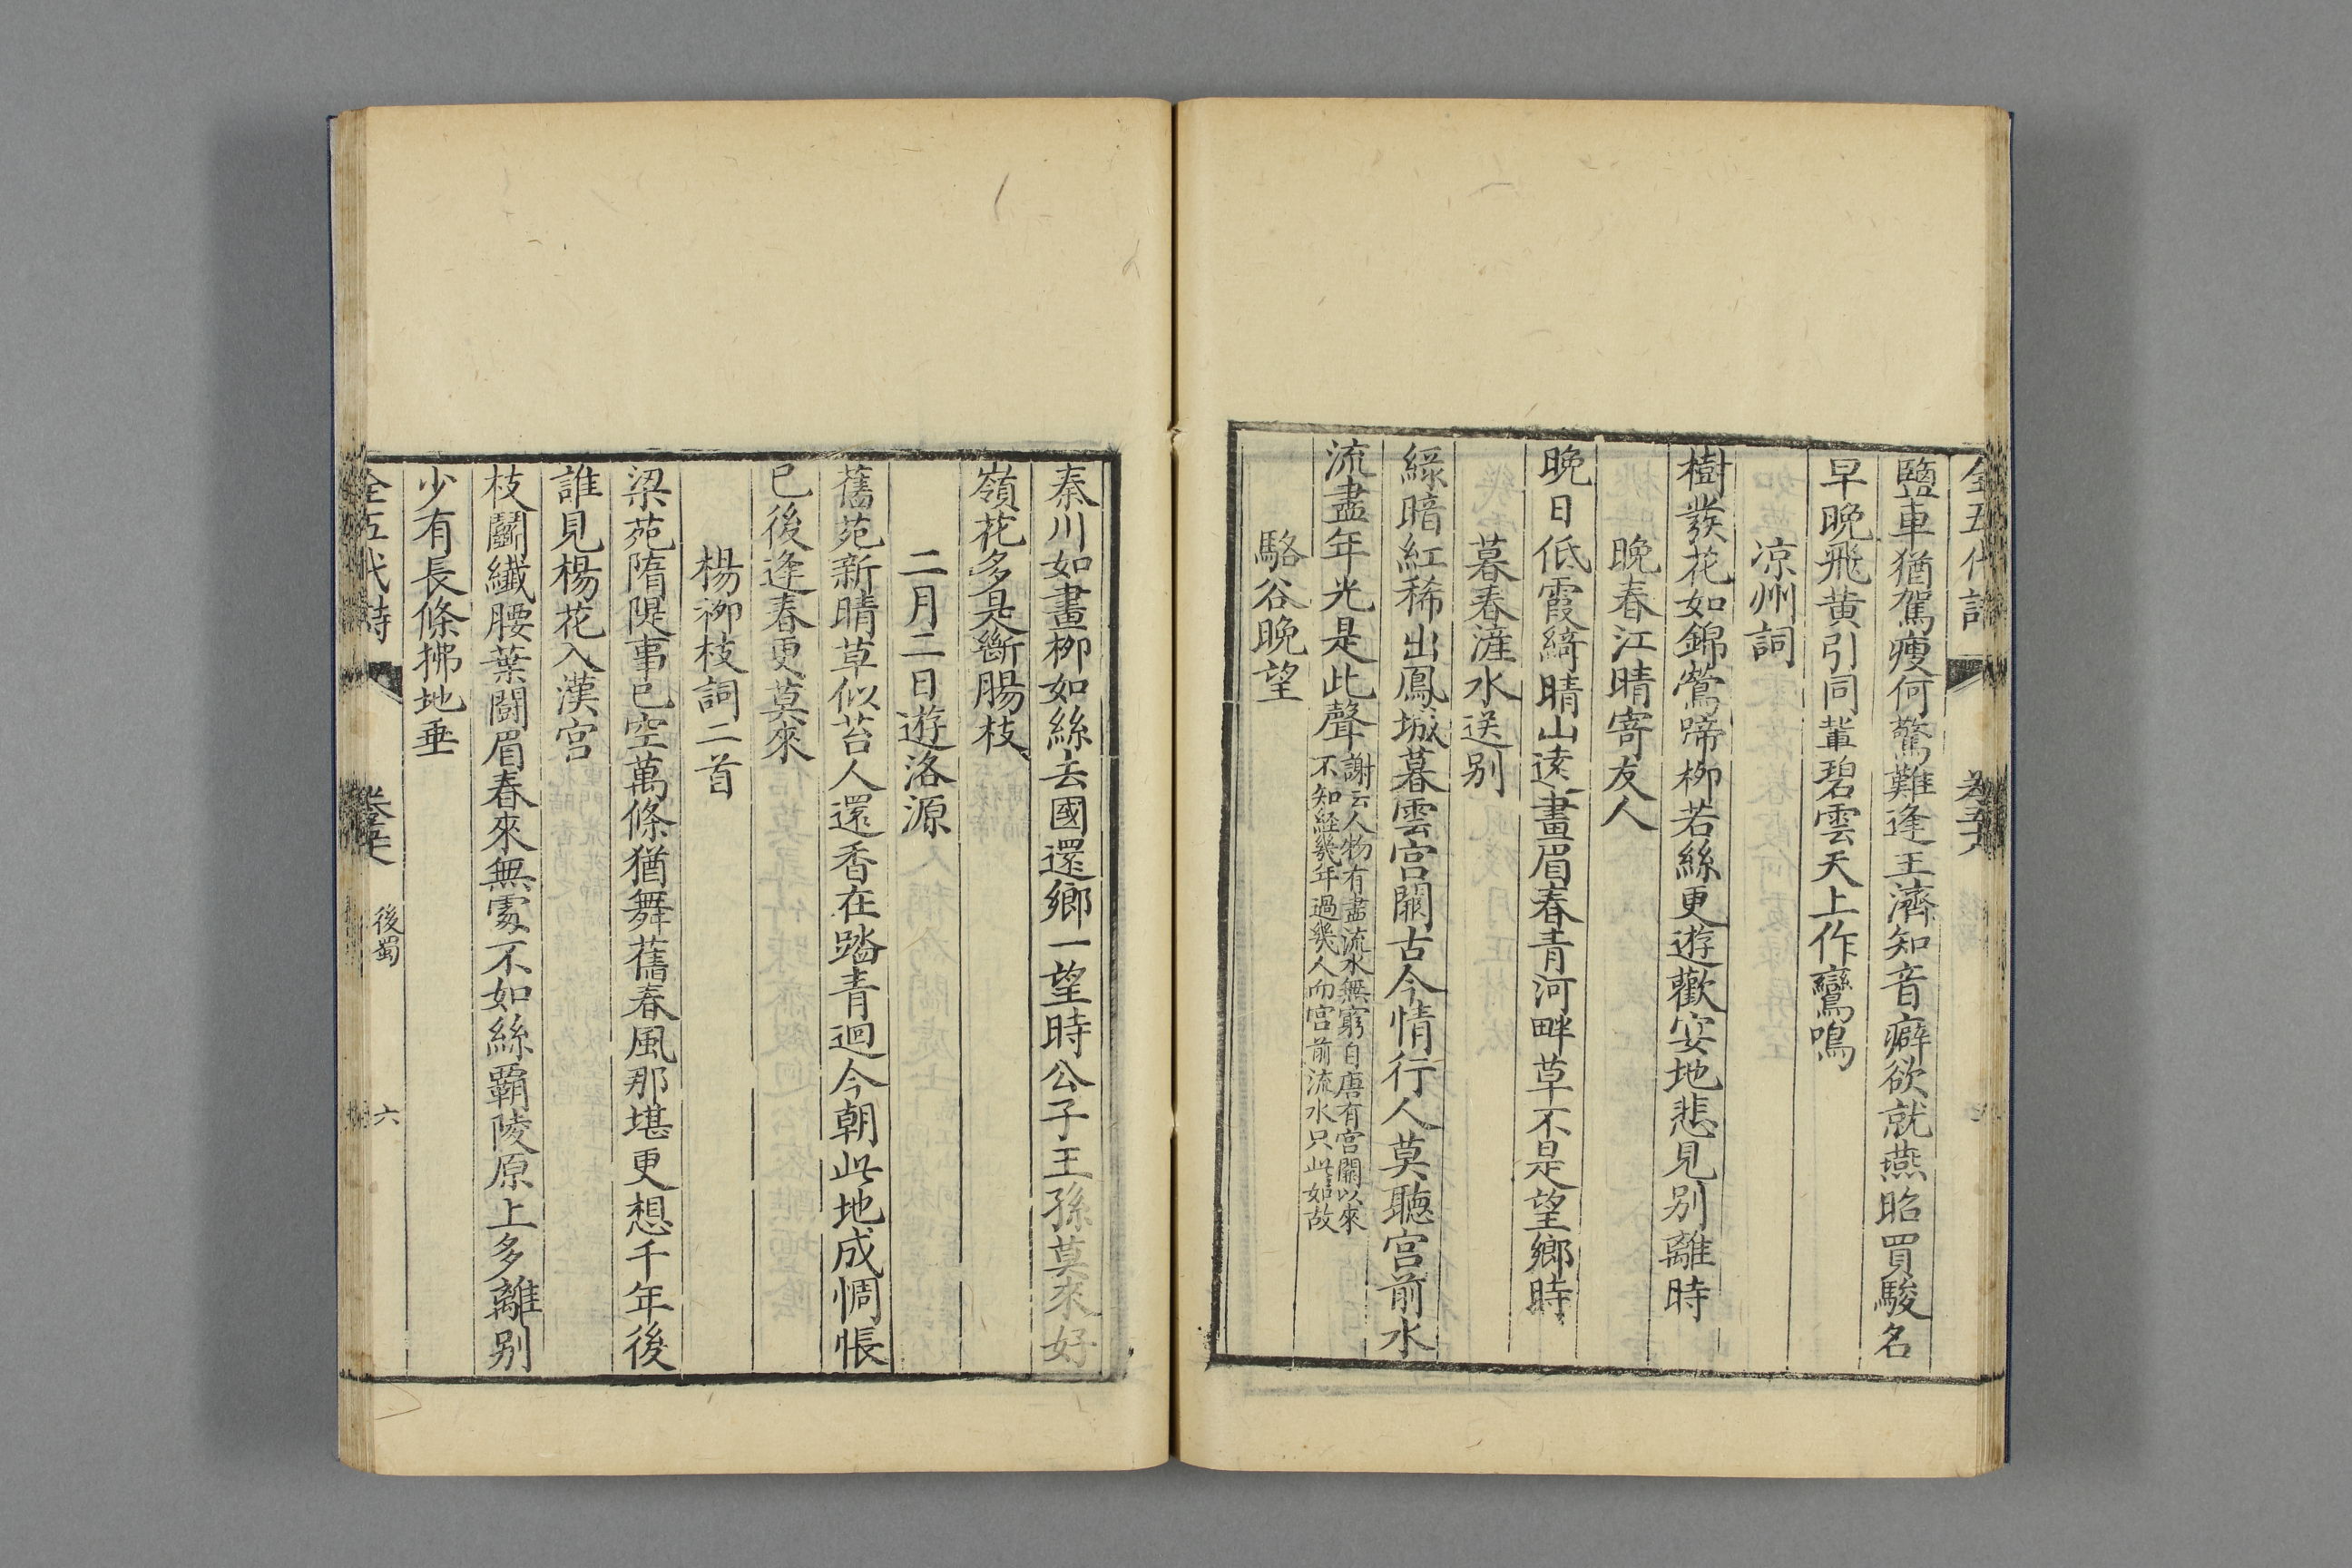 全五代詩
鹽車猶駕瘦何驚難逢王濟知音癖欲就燕昭買駿名
早晚飛黄引同輩碧雲天上作鸞鳴
凉州詞
樹發花如錦鶯啼柳若絲更遊歡宴地悲見别離時
晩春江晴寄友人
晩日低霞綺晴山遠畫眉春青河畔草不是望鄉時
暮春滻水送别
綠暗紅稀出鳳城暮雲宫闕古今情行人莫聽宫前水
流盡年光是此聲
謝云人物有盡流水無窮自唐有宫闕以來
不知經幾年過幾人而宫前流水只此如故
駱谷晩望
秦川如畫柳如絲去國還鄉一望時公子王孫莫來好
嶺花多是斷腸枝
二月二日遊洛源
舊苑新晴草似苔人還香在踏青迴今朝此地成惆悵
已後逢春更莫來
楊柳枝詞二首
梁苑隋隄事已空萬條猶舞舊春風那堪更想千年後
誰見楊花入漢宫
枝鬭纖腰葉鬭眉春來無處不如絲霸陵原上多離别
少有長條拂地垂
全五代詩
後蜀
六